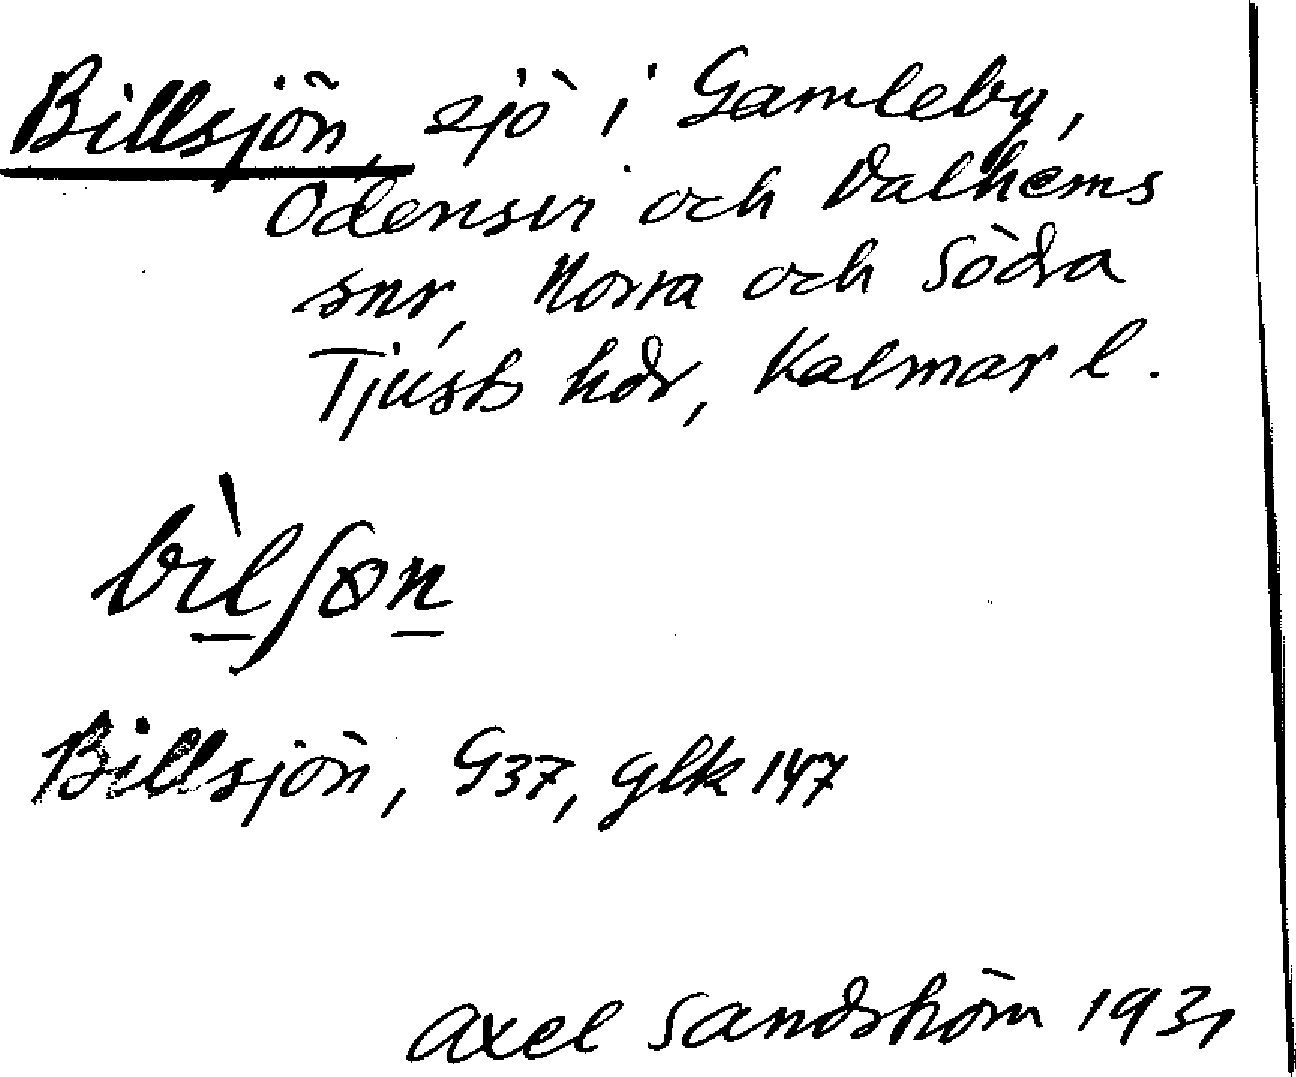 Billsjön, sjö i Gamleby,
Odensvi och Dalhems
snr, Norra och Södra
Tjusts hdr, Kalmar l.
bìlʃøn
Billsjön, G37, glk 147
Axel Sandström